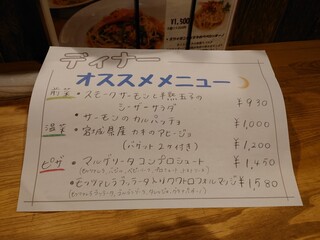 ¥1,100
ディナー
オススメメニュー
前菜 •スモークサーモンと半熟玉子の
シーザーサラダ ¥930
•サーモンのカルパッチョ ¥1,000
温菜 •宮城県産 カキのアヒージョ
(バゲット2ケ付き) ¥1,200
ピザ •マルゲリータコンプロシュート ¥1,450
•モッツァレラブッラータトリクワトロフォルマッジ ¥1,580